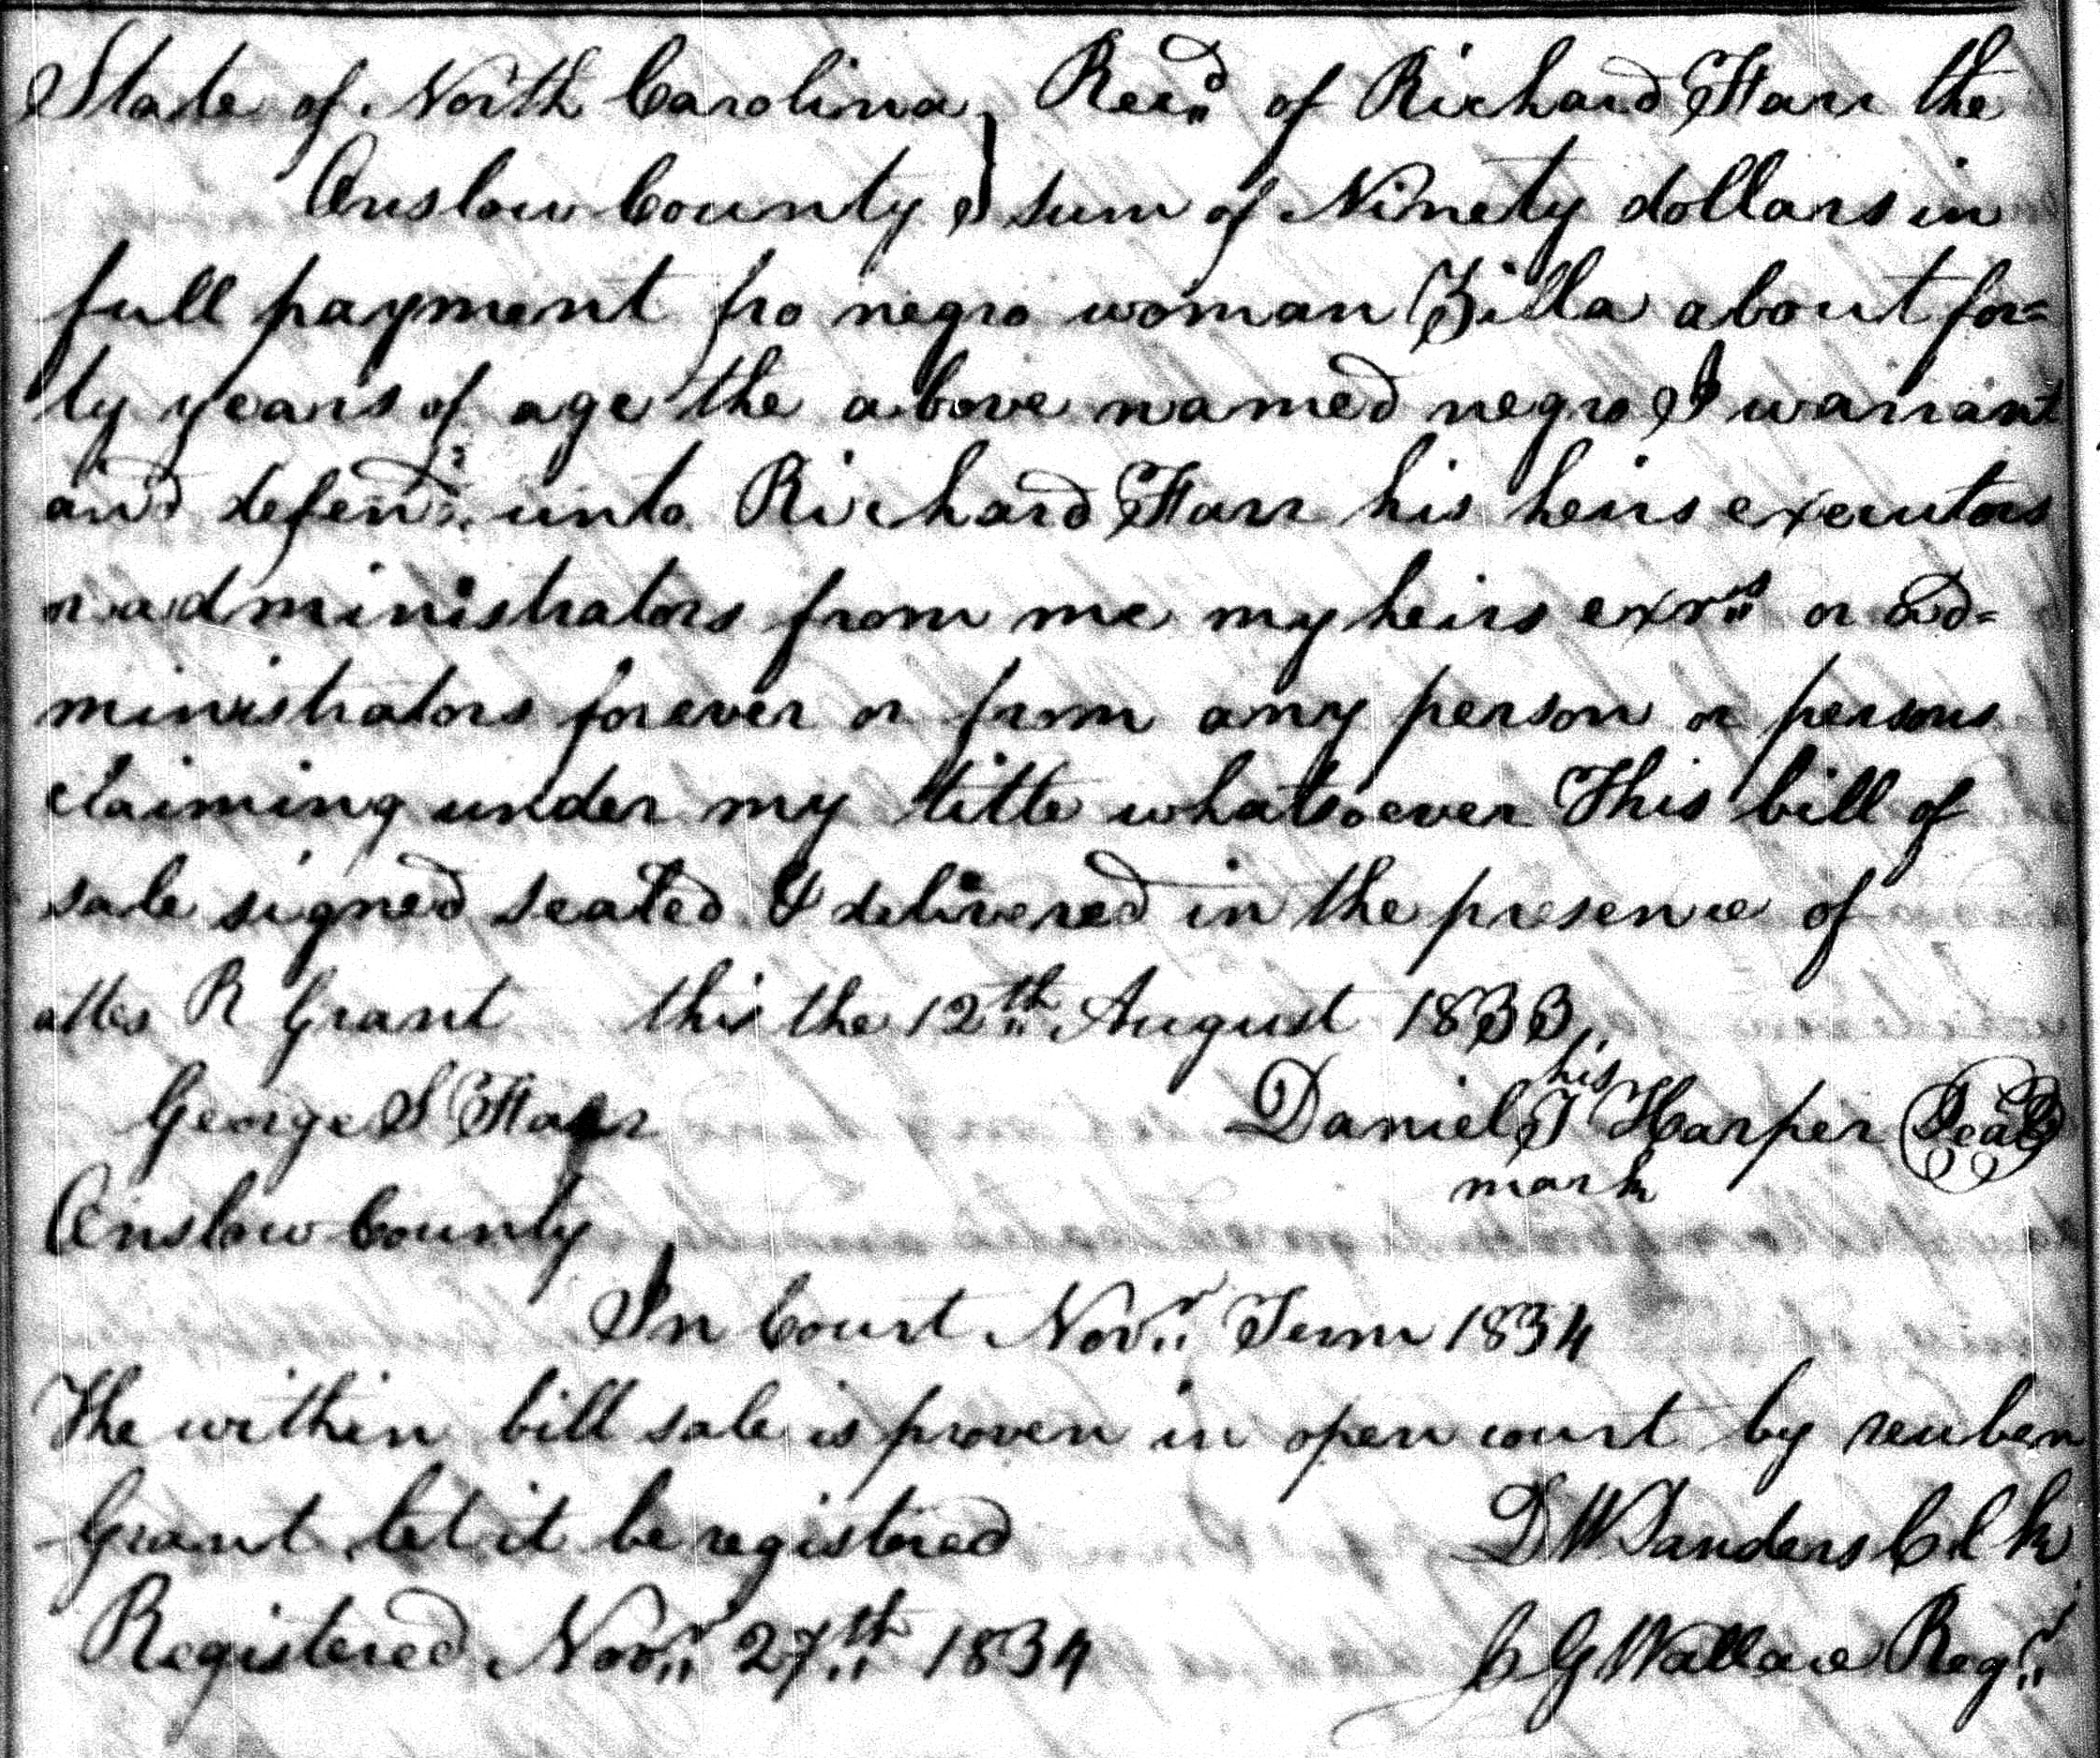 State of North Carolina } Recd of Richard Farr the
Onslow County } sum of Ninety dollars in
full payment fro negro woman Zilla about for=
ty years of age the above named negro I warrant
and defend unto Richard Farr his heirs executors
or administrators from me my heirs exrs or ad=
ministrators forever or from any person or persons
claiming under my title whatsoever This bill of
sale signed sealed & delivered in the presence of
attes R Grant this the 12th August 1833
his
George S Farr Daniel J Harper Seal
mark
Onslow County
In Court Novr Term 1834
The within bill sale is proven in open court by reuben
Grant let it be registered D W Sanders Clk
Registered Novr 27th 1834 C G Wallace Regr